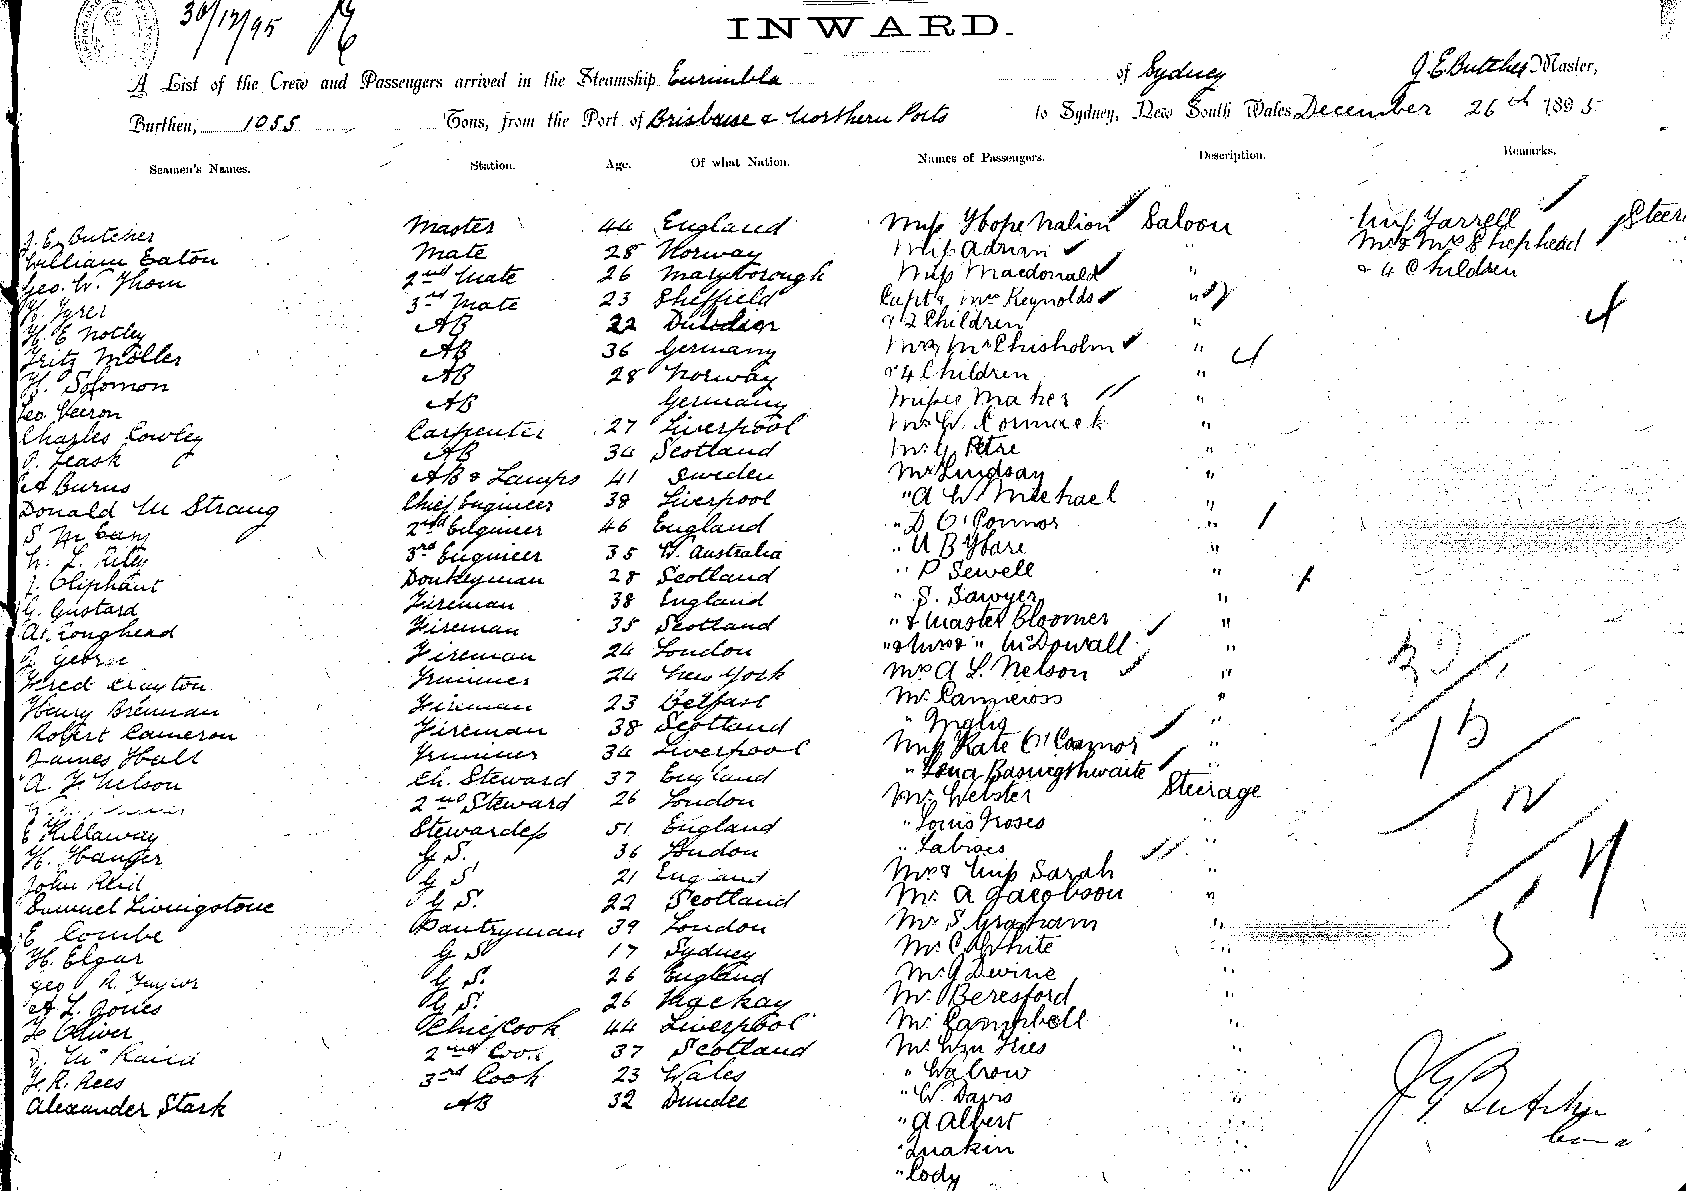 30/12/95
INWARD.
A List of the Crew and Passengers arrived in the Steamship Eurimbla of Sydney J E Butcher Master,
Burthen, 1055 Tons, from the Port of Brisbane & Northern Ports to Sydney, New South Wales December 26th 1895
Seamen's Names. Station. Age. Of what Nation. Names of Passengers. Description. Remarks.
J. E. Butcher Master 44 England Miss Hope Nation Saloon Miss Farrell Steer
William Eaton Mate 28 Norway Miss Adrian " Mr & Mrs Shephead
Geo. W. Thom 2nd Mate 26 Maryborough Miss Macdonald " & 4 Children
H. Tyrer 3rd Mate 23 Sheffield Capt & Mrs Reynolds "
H E Notley AB 22 & 2 Children "
Fritz Moller AB 36 Germany Mr & Mrs Chisholm "
H. Solomon AB 28 Norway & 4 Children "
Geo. AB Germany Misses Maher "
Charles Cowley Carpenter 27 Liverpool Mr W. Cormack "
Leask AB 34 Scotland Mr G Petre "
A Burns AB & Lamps 41 Sweden Mr Lindsay "
Donald McStrang Chief Engineer 38 Liverpool " A W Michael "
S 2nd Engineer 46 England " D O'Connor "
L. Riley 3rd Engineer 35 W. Australia " A B Hare "
J. Oliphant Donkeyman 28 Scotland " P Sewell "
G. Gustard Fireman 38 England " S. Sawyer "
A. Loughead Fireman 35 Scotland " & Master Bloomer "
J. George Fireman 24 London " & Nurse " McDowall "
Fred Crayton Trimmer 24 New York Mrs A L. Nelson "
Henry Brennan Fireman 23 Belfast Mr Cameross "
Robert Cameron Fireman 38 Scotland " Inglis "
James Hall Trimmer 34 Liverpool Miss Kate O'Connor "
A. F. Nelson Ch. Steward 37 England " Lena Basingthwaite "
2nd Steward 26 London Mr Webster Steerage
E Killaway Stewardess 51 England " Louis Moses "
H. Hanger G S. 36 London "
John Reid G S 21 England Mrs & Miss Sarah
Samuel Livingstone G S. 22 Scotland Mr A Jacobson "
E Combe Pantryman 39 London Mr S Graham "
H. Elgar G S 17 Sydney Mr C White "
Geo R Taylor G S. 26 England Mr J Devine "
A L. Jones G S. 26 Mackay Mr Beresford "
F Oliver Chief Cook 44 Liverpool Mr Campbell "
D. 2nd Cook 37 Scotland Mr Wm Fries "
F. R. Rees 3rd Cook 23 Wales " Walrow "
Alexander Stark AB 32 Dundee " W. Davis "
" A Albert "
" Quakin "
" Cody "
J E Butcher